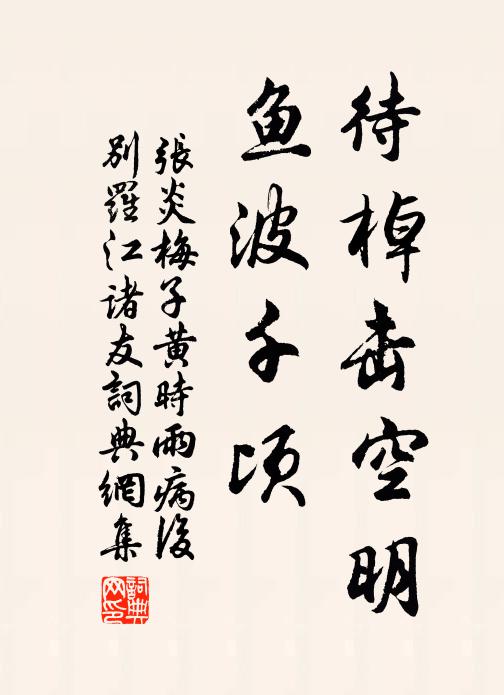 待棹击空明
鱼波千顷
張炎梅子黄時雨病後
别羅江诸友詞典網集
詞典网印